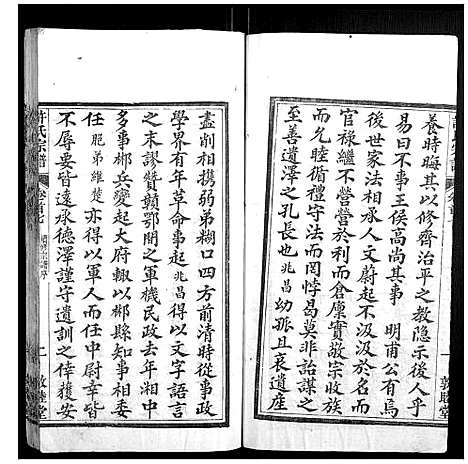 養時晦其以修齊治平之教隱示後人乎
易曰不事王侯高尚其事 明甫公有焉
後世家法相承人文蔚起不汲汲於名而
官祿繼不營營於利而倉廩實敬宗收族
而九睦循行無法而罔悖曷莫非詒謀之
至善遺澤之孔長也兆昌幼孤且衰遺産
敦睦堂
盡削相携弱弟糊口四方前清時從事政
學界有年革命事起兆昌以文字語言
之末謬贊贛鄂閩之軍機民政去年湘中
多事郴兵變起大府輒以郴縣知事相委
任胞弟維楚亦得以軍人而任中尉幸皆
不辱要皆遠承德澤謹守遺訓之倖獲安
許氏宗譜 卷首七 續修宗譜序 二 敦睦堂